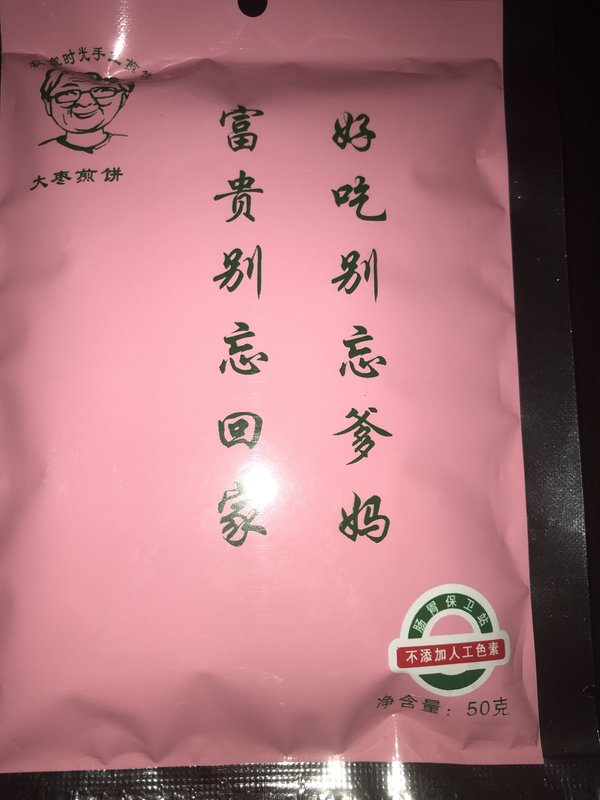 时光手工煎饼
大枣煎饼
好吃别忘爹妈
富贵别忘回家
肠胃保卫站
不添加人工色素
净含量：50克